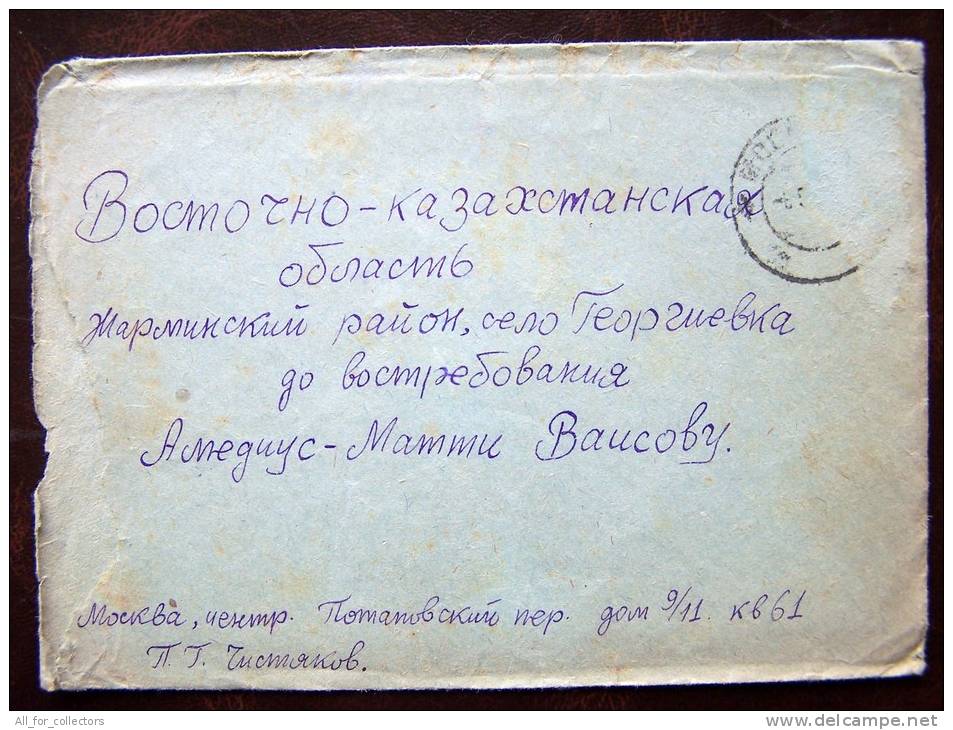 Восточно-казахстанская
область
Жарминский район, село Георгиевка
до востребования
Амедиус-Матти Ваисову.
Москва, центр. Потаповский пер. дом 9/11. кв 61
П. Г. Чистяков.
All_for_collectors
www.delcampe.net